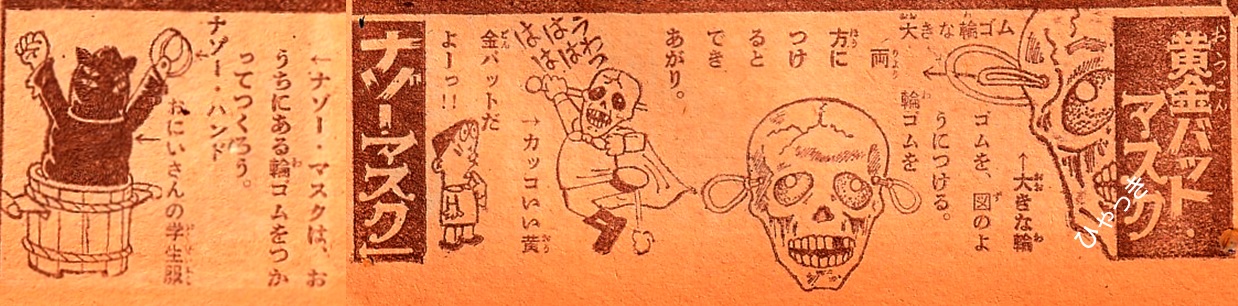 黄金バット・
マスク
大きな輪ゴム
←大きな輪
ゴムを、図のよ
うにつける。
輪ゴムを
両
方に
つけ
ると
でき
あがり。
うわっ
ははは
ははは
→カッコいい黄
金バットだ
よーっ!!
「ナゾー・マスク」
←ナゾー・マスクは、お
うちにある輪ゴムをつか
ってつくろう。
ナゾー・ハンド
おにいさんの学生服
ひやつき